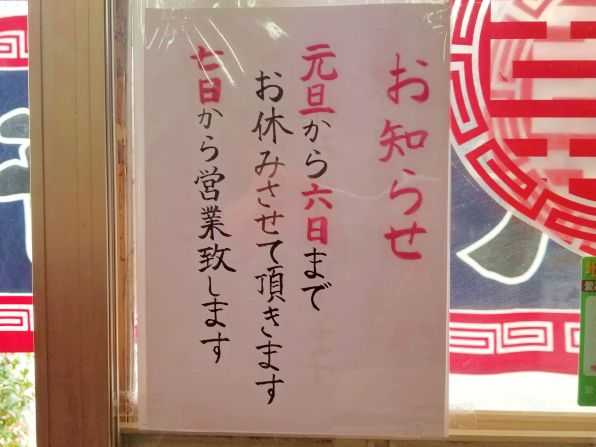 お知らせ
元旦から六日まで
お休みさせて頂きます
七日から営業致します